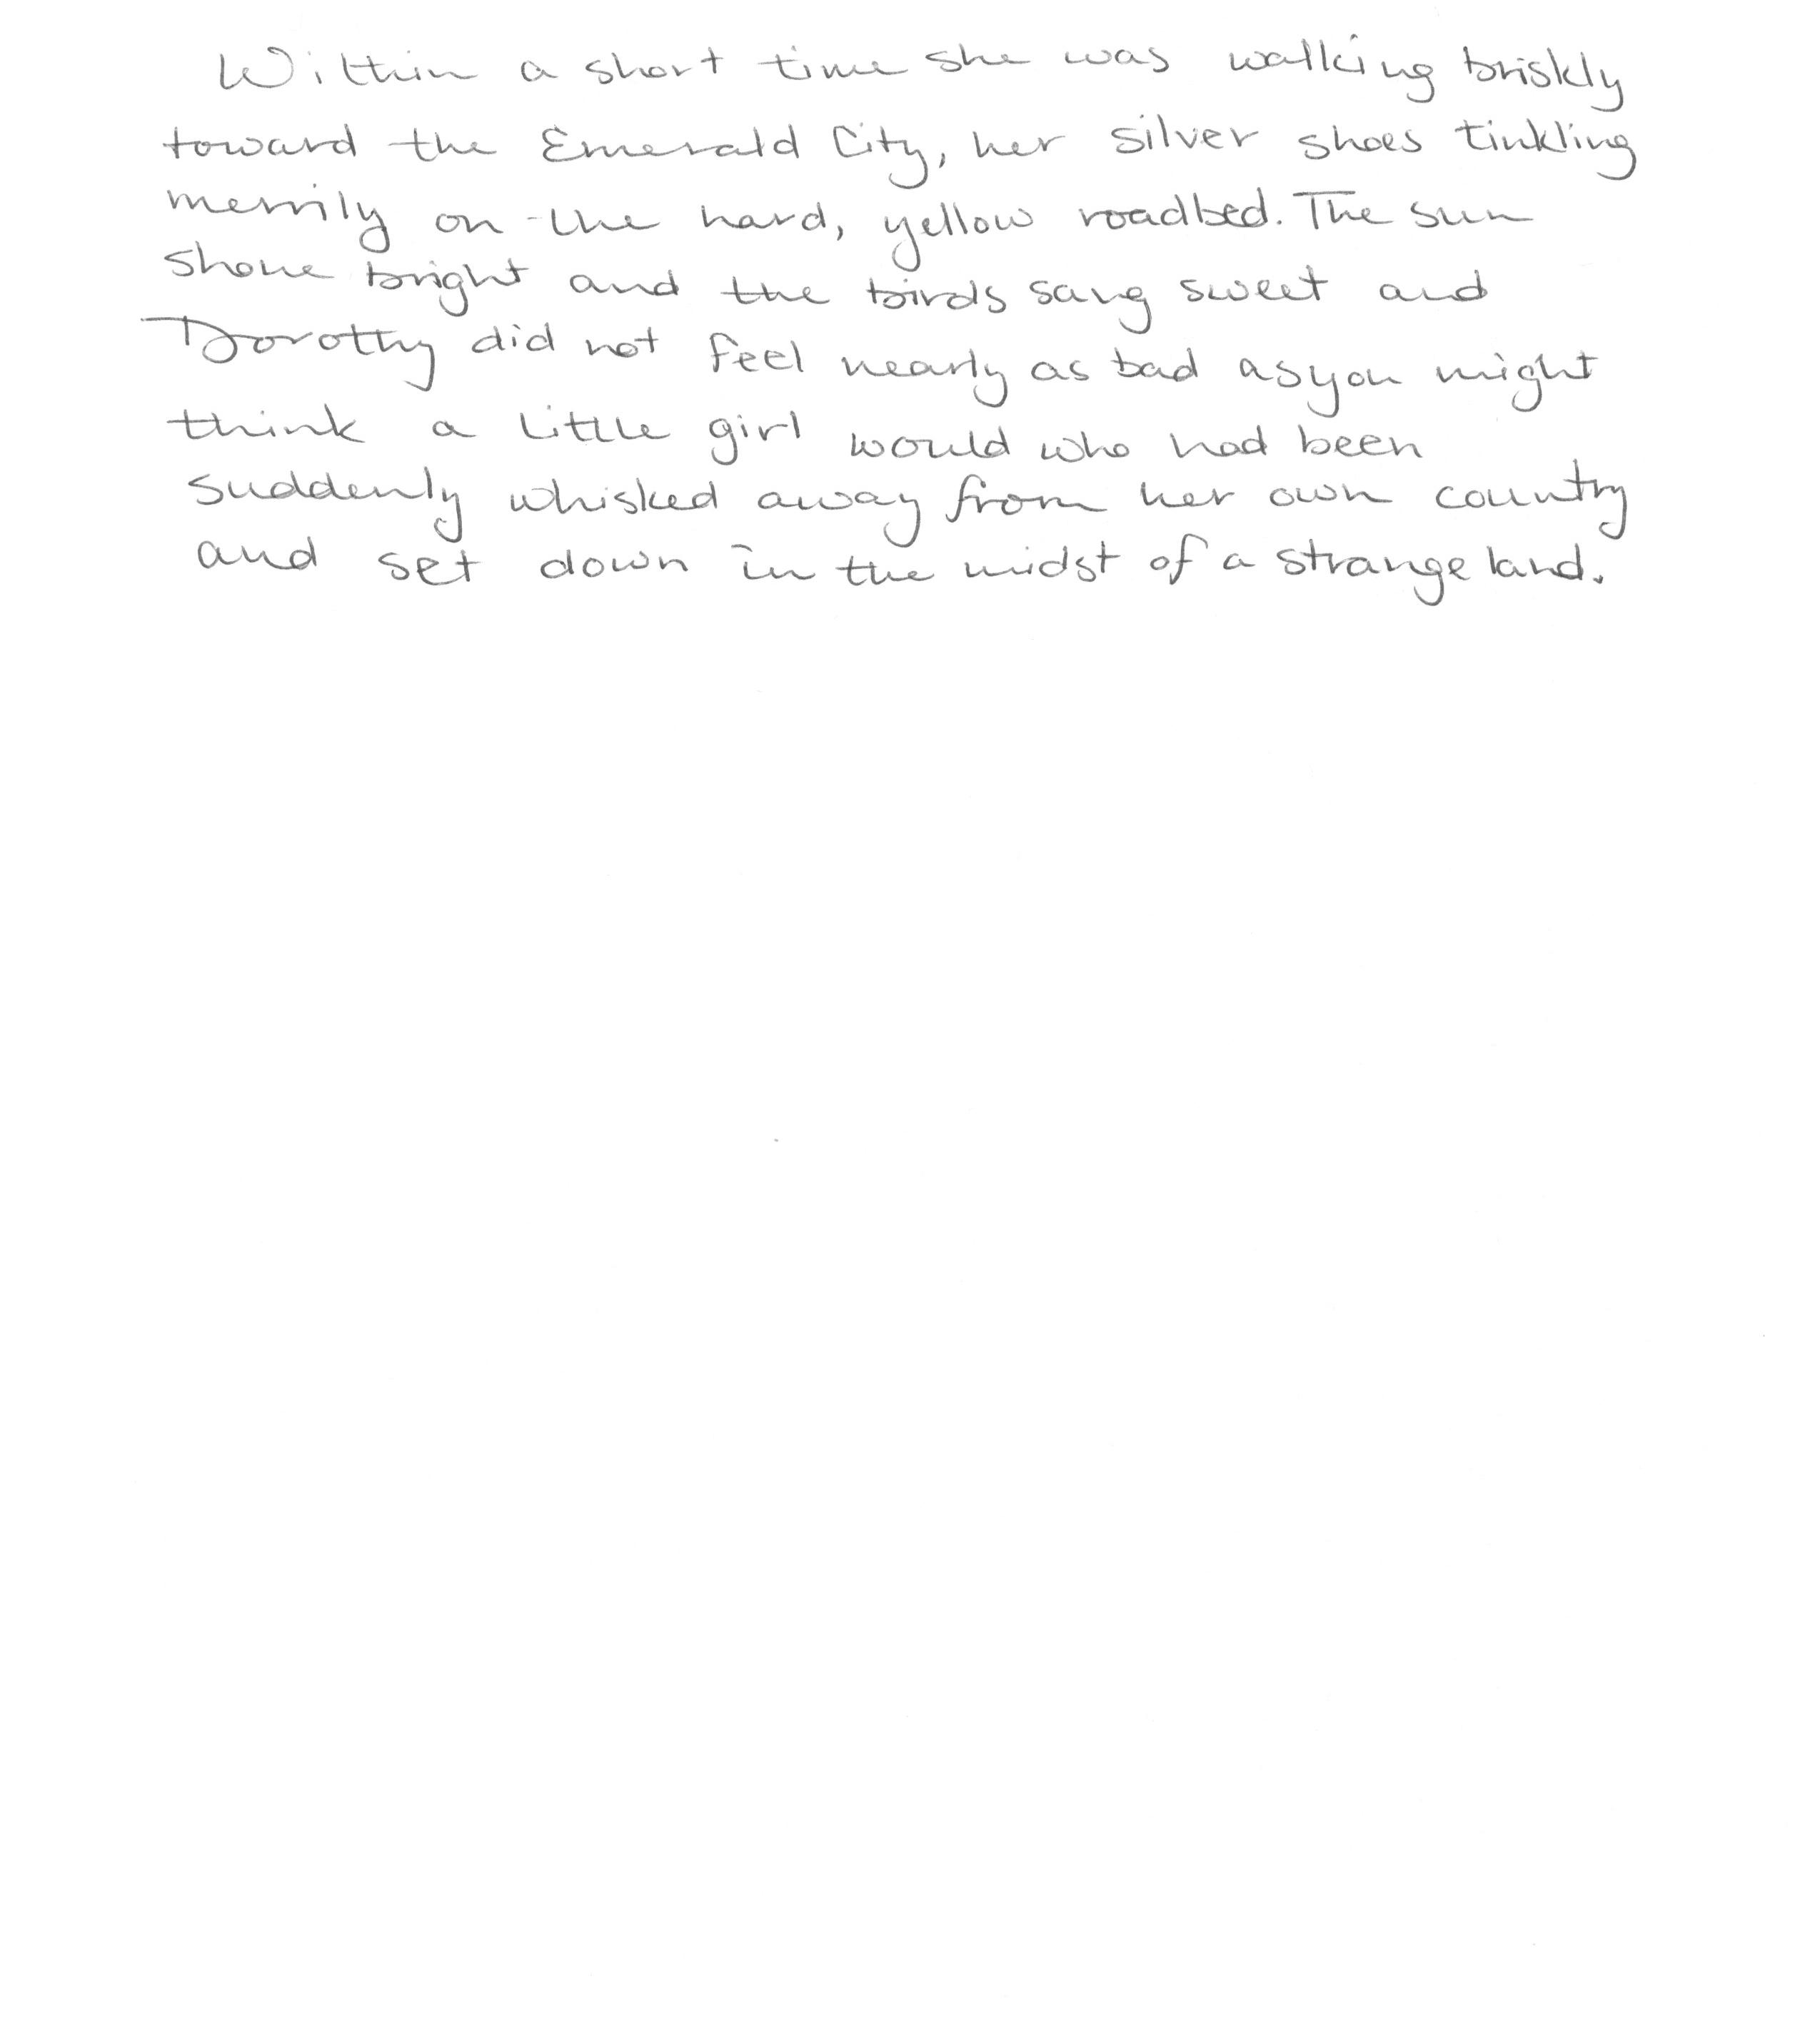 Within a short time she was walking briskly
toward the Emerald City, her silver shoes tinkling
merrily on the hard, yellow roadbed. The sun
shone bright and the birds sang sweet and
Dorothy did not feel nearly as bad as you might
think a little girl would who had been
suddenly whisked away from her own country
and set down in the midst of a strange land.